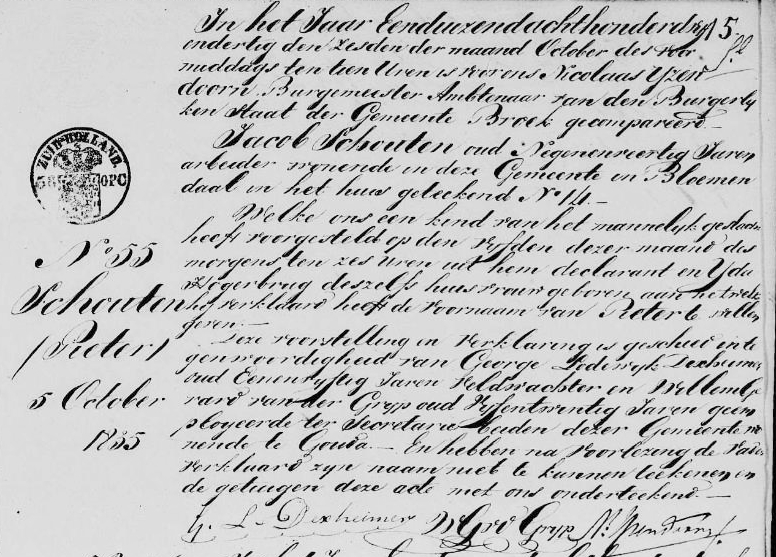 In het Jaar Eenduizendachthonderd
15.
ondertig den Zesden der maand October des voor
middags ten tien Uren is voor ons Nicolaas Yzen
doorn Burgemeester Ambtenaar van den Burgerly
ken staat der Gemeente Broek gecompareerd
Jacob Schouten oud Negenenveertig Jaren
arbeider wonende in deze Gemeente in Bloemen
daal in het huis geteekend No 14.
Welke ons een kind van het mannelyk geslacht
heeft voorgesteld op den vyfden dezer maand des
morgens ten zes Uren uit hem declarant en Yda
Hogerbrug deszelfs huisvrouw geboren aan het welk
hy verklaard heeft de voornaam van Pieter te willen
geven.
Deze voorstelling en verklaring is geschied in te
genwoordigheid van George Lodewyk Dexheimer
oud Eenenvyftig Jaren Veldwachter en Willem Ge
rard van der Gryp oud Vyfentwintig Jaren geem
ployeerde ter Secretarie beiden dezer Gemeente wo
nende te Gouda. En hebben na Voorlezing de Vader
verklaard zyn naam niet te kunnen teekenen en
de getuigen deze acte met ons onderteekend
G. L. Dexheimer WG vd Gryp
ZUID-HOLLAND.
OPC
No 55
Schouten
(Pieter)
5 October
1835